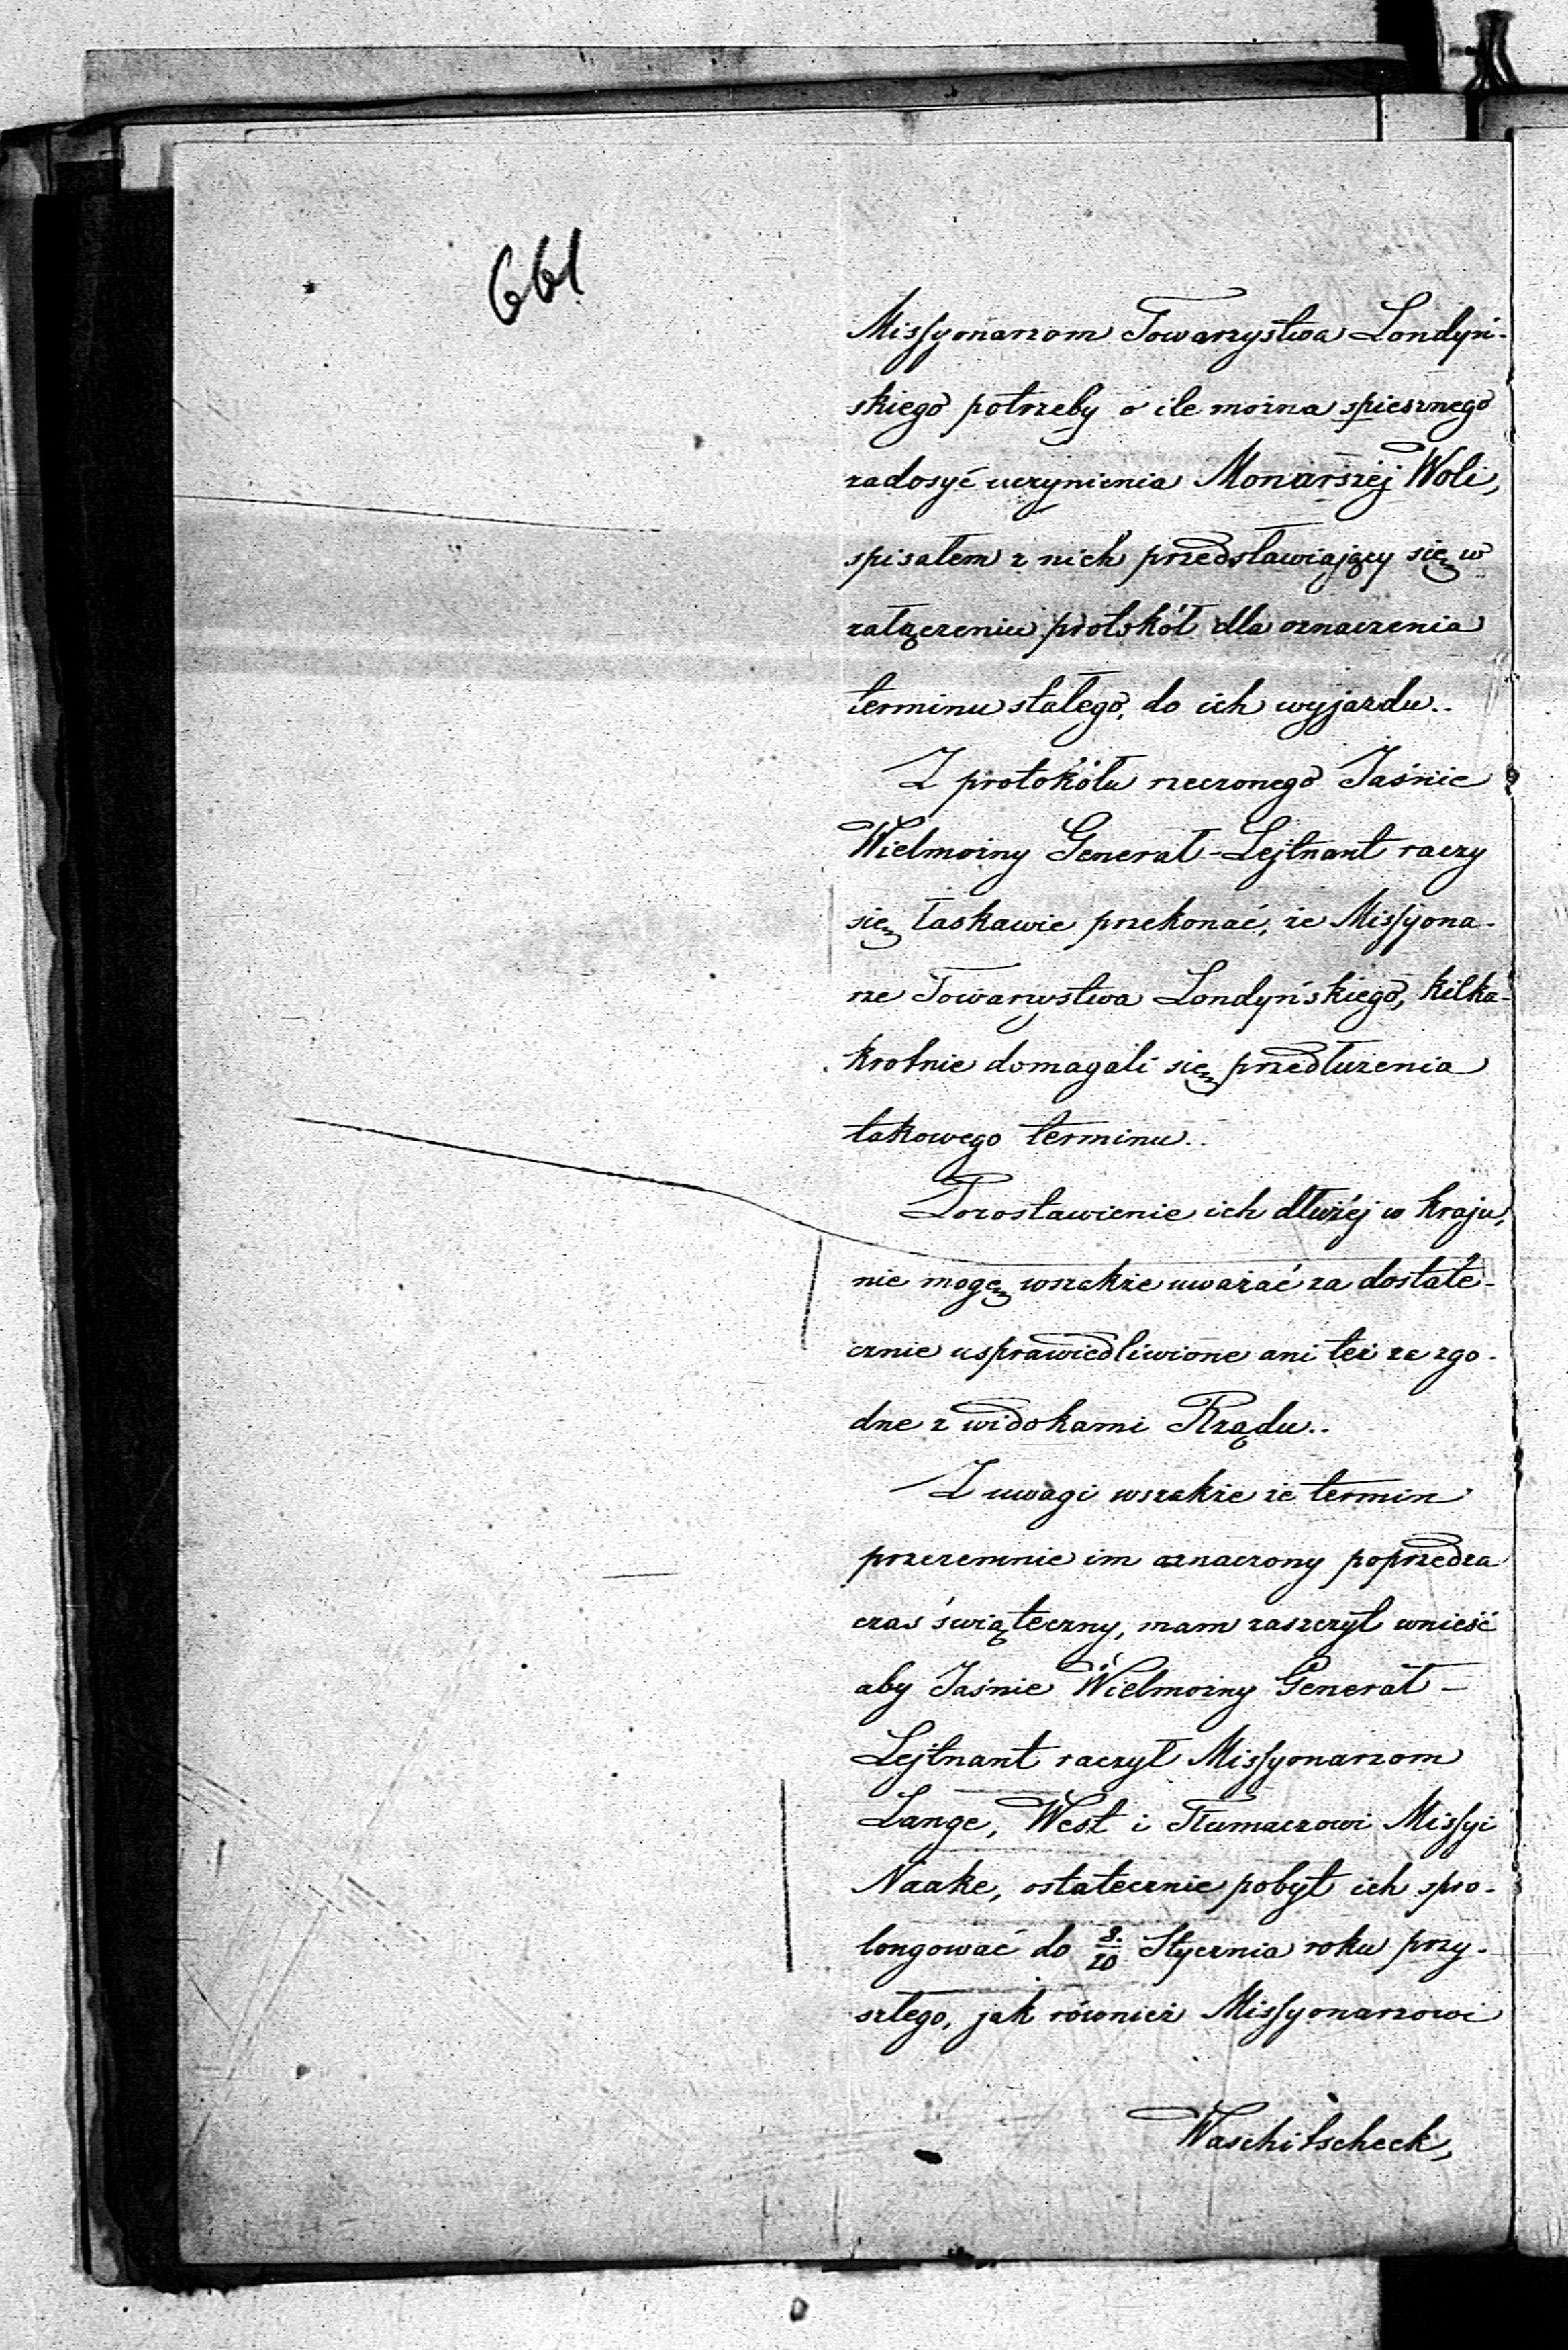 661
Missyonarzom Towarzystwa Londyń-
skiego potrzeby o ile można spiesznego
zadosyć uczynienia Monarszéj Woli,
spisałem z nich przedstawiający się w
załączeniu protokół dla oznaczenia
terminu stałego, do ich wyjazdu..
Z protokółu rzeczonego Jaśnie
Wielmożny Generał-Lejtnant raczy
się łaskawie przekonać, że Missyona-
rze Towarzystwa Londyńskiego, kilka-
krotnie domagali się przedłużenia
takowego terminu..
Pozostawienie ich dłużéj w kraju,
nie mogę wszakże uważać za dostate-
cznie usprawiedliwione ani też za zgo-
dne z widokami Rządu..
Z uwagi wszakże że termin
przezemnie im oznaczony poprzedza
czas świąteczny, mam zaszczyt wnieść
aby Jaśnie Wielmożny Generał-
Lejtnant raczył Missyonarzom
Lange, West i Tłumaczowi Missyi
Naake, ostatecznie pobyt ich spro-
longować do 8./20 Stycznia roku przy-
szłego, jak również Missyonarzowi
Waschitscheck,